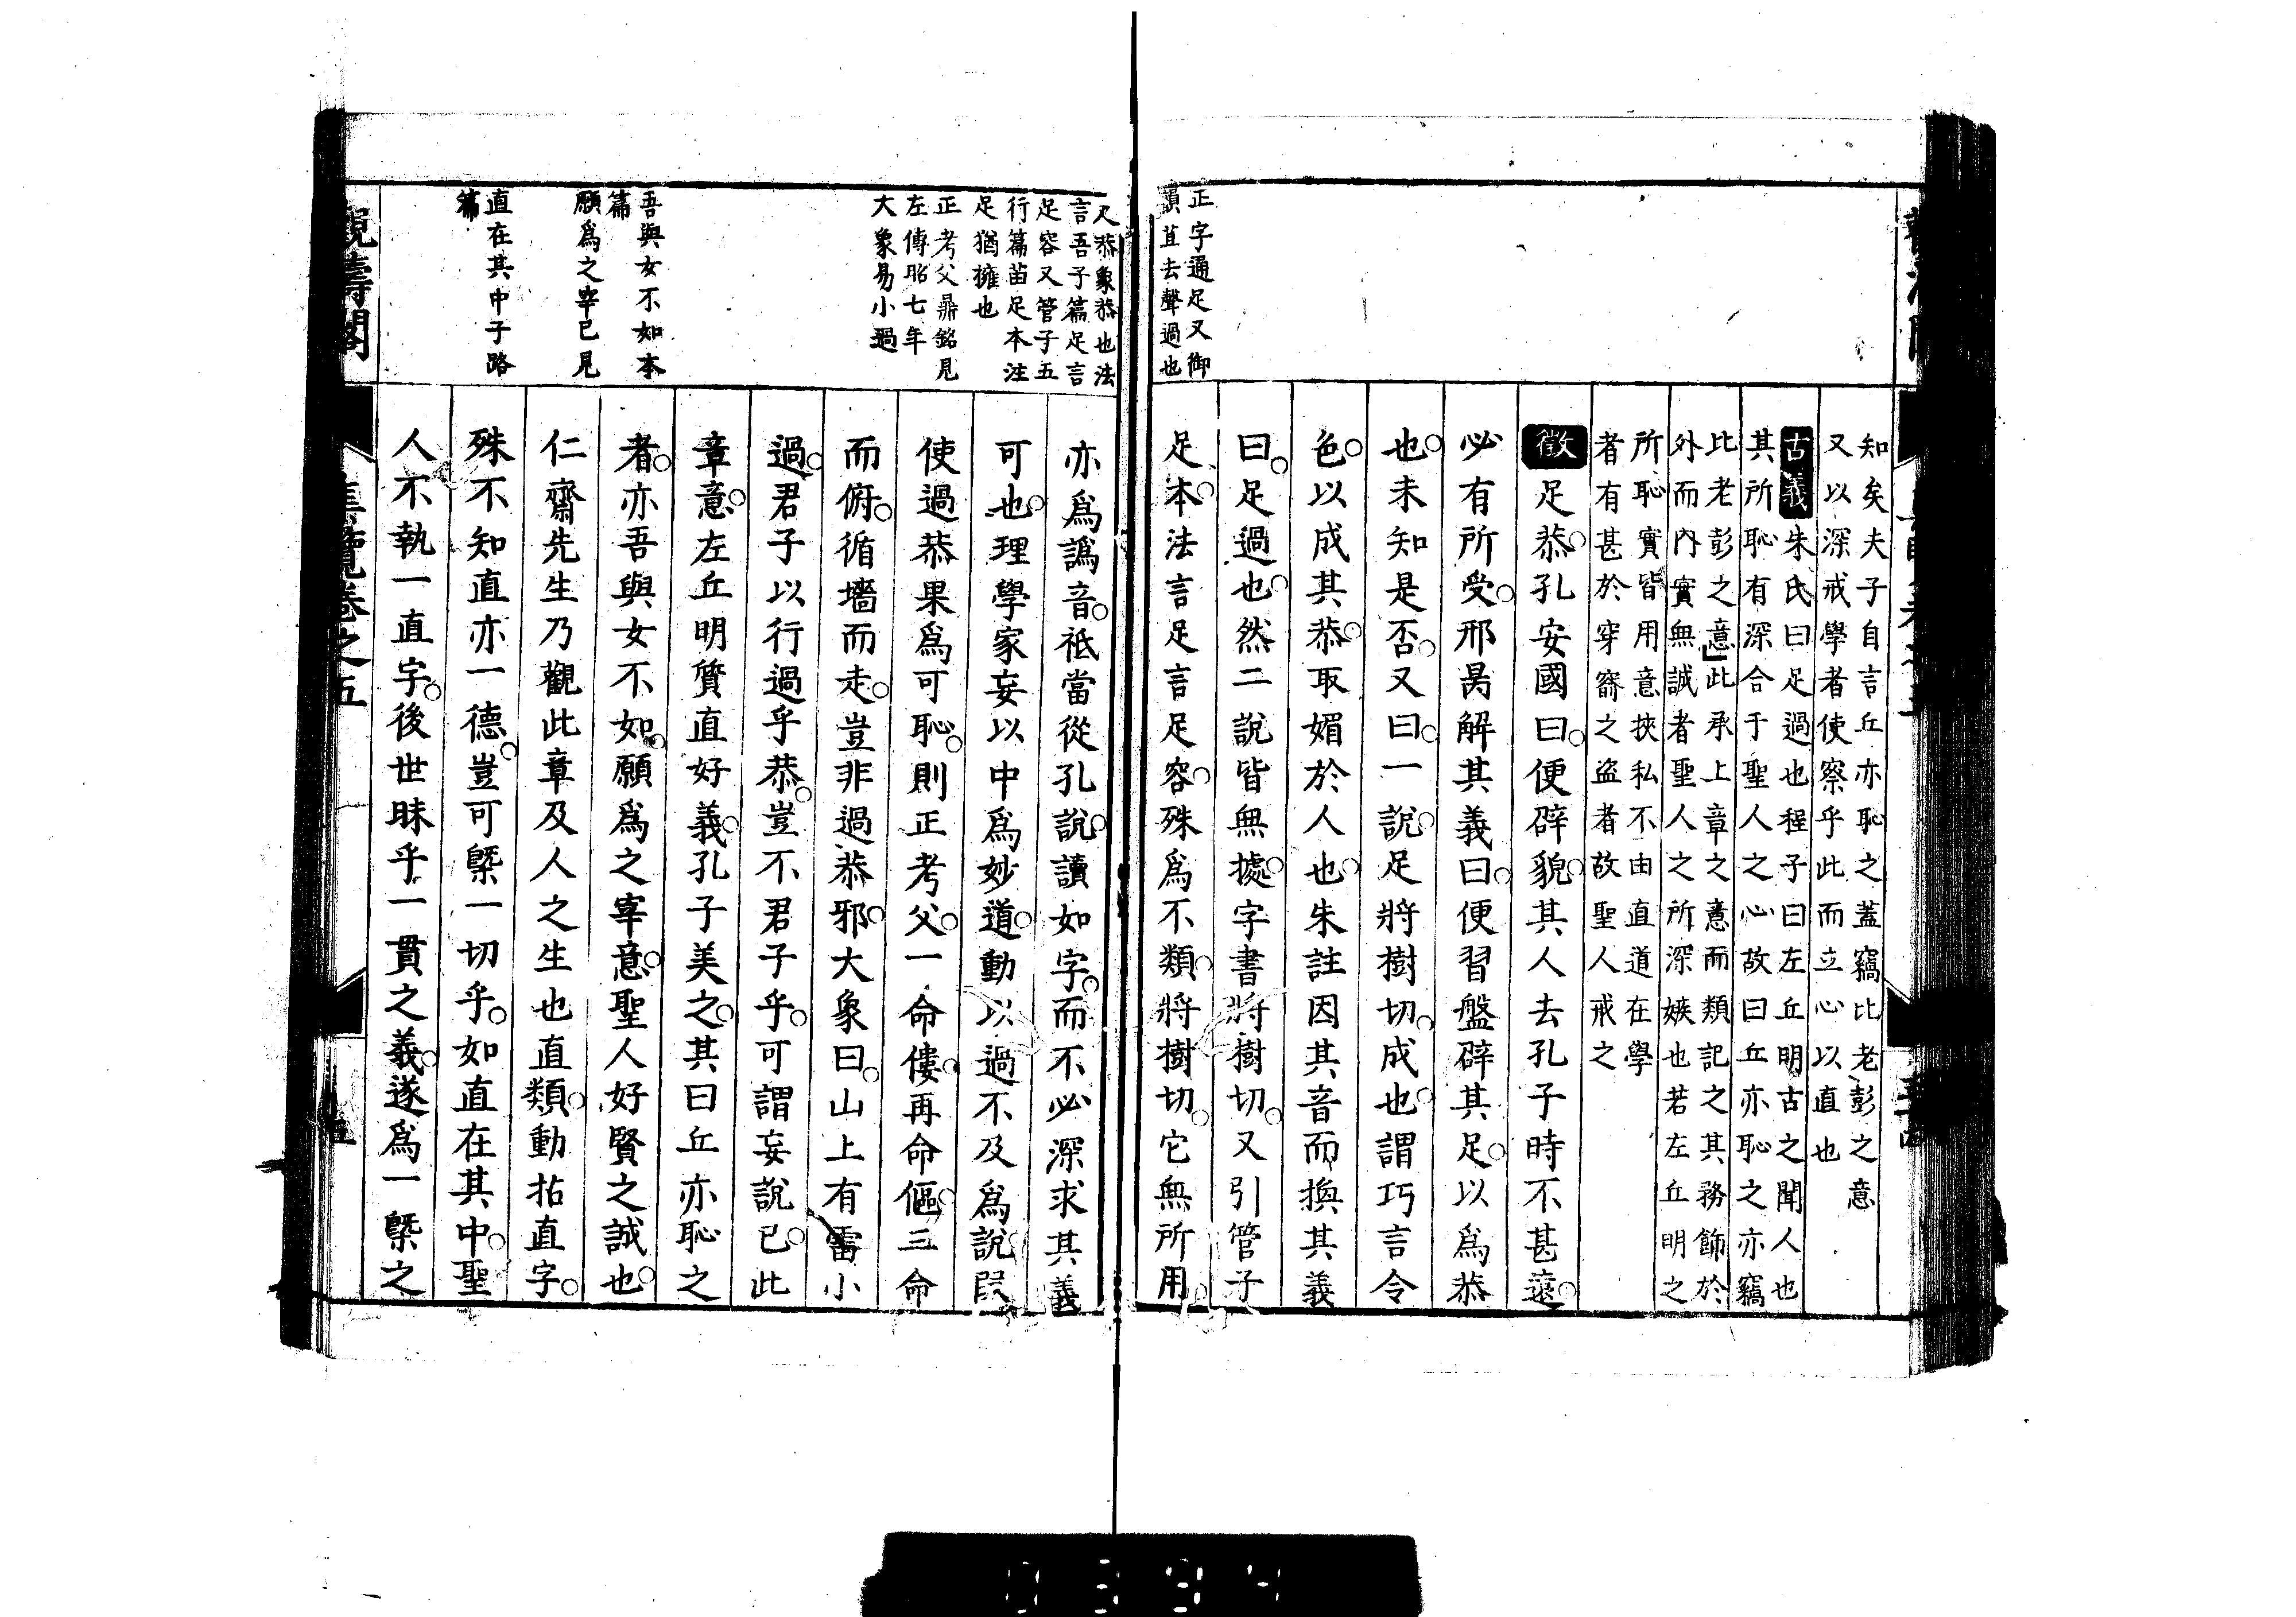 知矣夫子自言丘亦恥之蓋竊比老彭之意
又以深戒學者使察乎此而立心以直也
古義朱氏曰足過也程子曰左丘明古之聞人也
其所恥有深合于聖人之心故曰丘亦恥之亦竊
比老彭之意此承上章之意而類記之其務飾於
外而內實無誠者聖人之所深嫉也若左丘明之
所恥實皆用意挾私不由直道在學
者有甚於穿窬之盜者故聖人戒之
徵足恭孔安國曰便辟貌其人去孔子時不甚遠
必有所受邢昺解其義曰便習盤辟其足以爲恭
也未知是否又曰一說足將樹切成也謂巧言令
色以成其恭取媚於人也朱註因其音而換其義
曰足過也然二說皆無據字書將樹切又引管子
足本法言足言足容殊爲不類將樹切它無所用
正字通足又御
韻苴去聲過也
亦爲譌音祗當從孔說讀如字而不必深求其義
可也理學家妄以中爲妙道動以過不及爲說
使過恭果爲可恥則正考父一命僂再命傴三命
而俯循墻而走豈非過恭邪大象曰山上有雷小
過君子以行過乎恭豈不君子乎可謂妄說已此
章意左丘明質直好義孔子美之其曰丘亦恥之
者亦吾與女不如願爲之宰意聖人好賢之誠也
仁齋先生乃觀此章及人之生也直類動拈直字
殊不知直亦一德豈可槩一切乎如直在其中聖
人不執一直字後世昧乎一貫之義遂爲一槩之
恭象恭也法
言吾子篇足言
足容又管子五
行篇苗足本注
足猶擁也
正考父鼎銘見
左傳昭七年
大象易小過
吾與女不如本
篇
願爲之宰已見
直在其中子路
篇
觀濤閣
集覽卷之五
0394